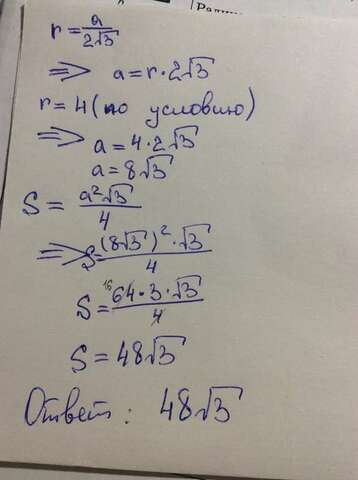 r = a/2√3
⇒ a = r·2√3
r = 4 (по условию)
⇒ a = 4·2√3
a = 8√3
S = a²√3/4
⇒ S = (8√3)²·√3/4
S = 16 64·3·√3/4
S = 48√3
Ответ: 48√3